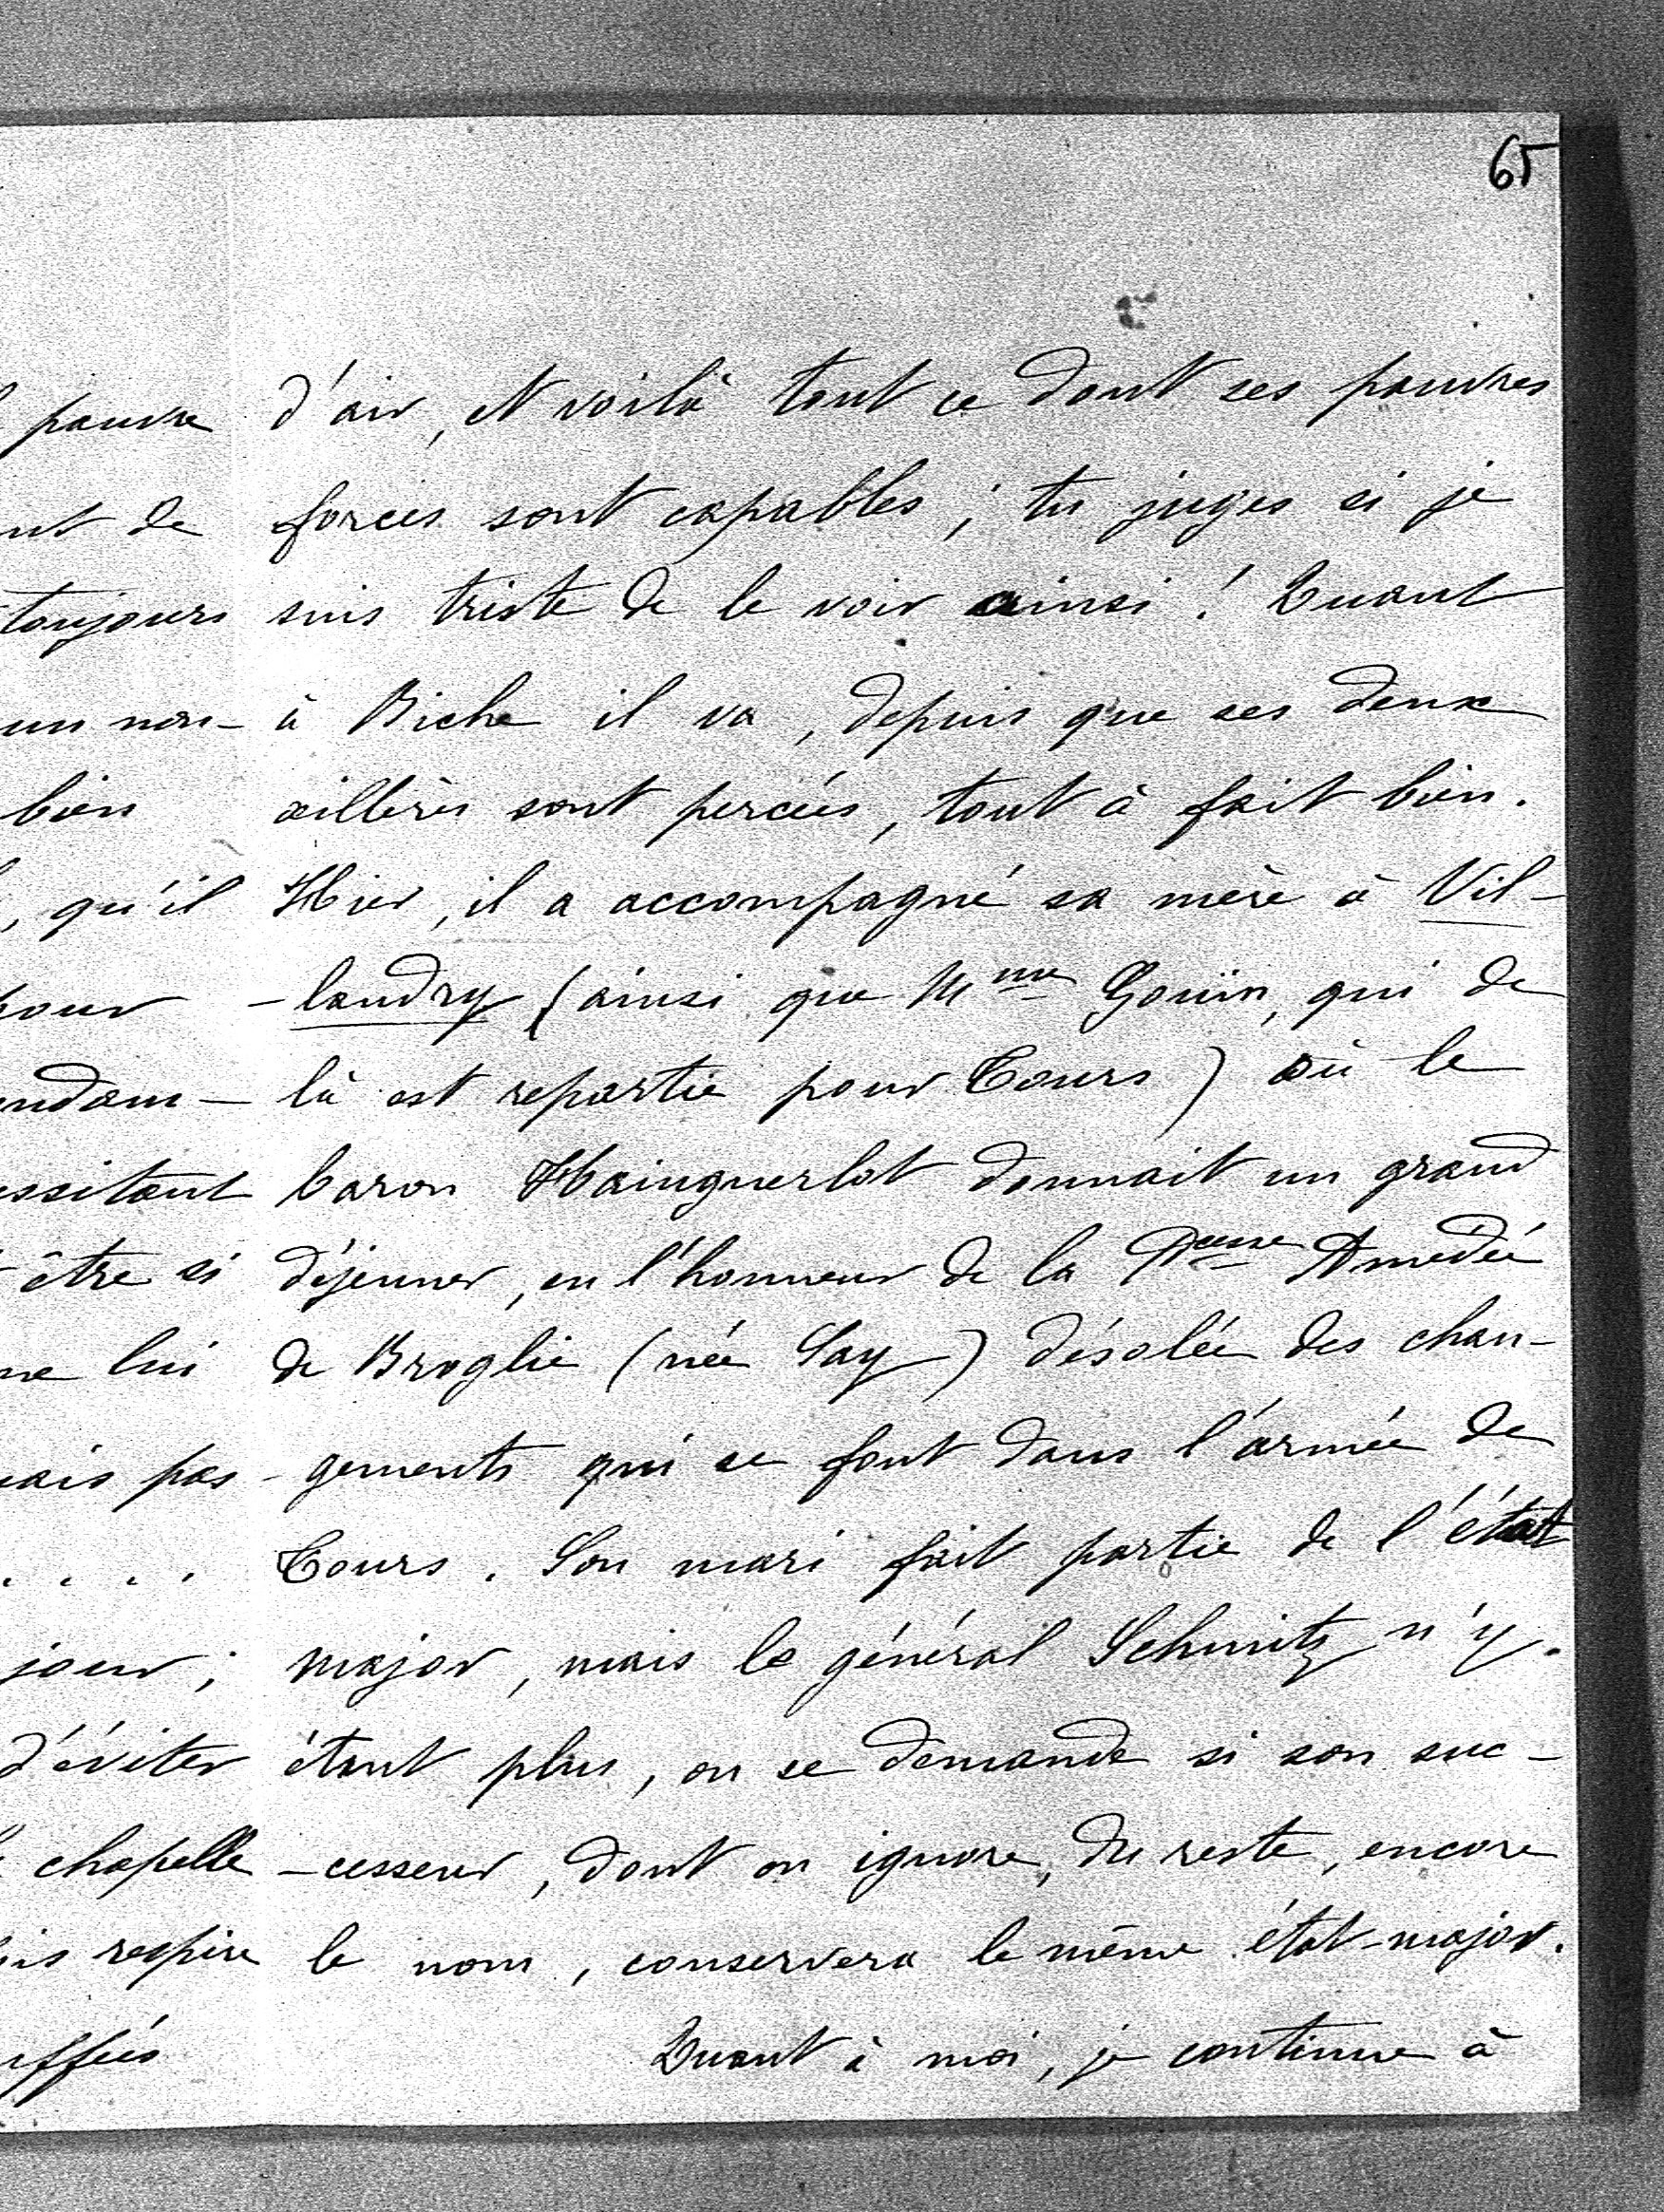 65
pauvre
nt de
toujours
un nou-
bien
, qu'il
pour
endam-
essitant
être si
ne lui
mais pas
. . . .
jour ;
d'éviter
chapelle
respire
uffées
d'air, et voilà tout ce dont ses pauvres
forces sont capables ; tu juges si je
suis triste de le voir ainsi ! Quant
à Biche il va, depuis que ses deux
œillères sont percées, tout à fait bien.
Hier, il a accompagné sa mère à Vil-
-landry (ainsi que Mme Goüin, qui de
là est repartie pour Tours) où le
baron Hainguerlot donnait un grand
déjeuner, en l'honneur de la Pcesse Amédée
de Broglie (née Say) désolée des chan-
-gements qui se font dans l'armée de
Tours. Son mari fait partie de l'état
major, mais le général Schmitz n'y
étant plus, on se demande si son suc-
-cesseur, dont on ignore, du reste, encore
le nom, conservera le même état-major.
Quant à moi, je continue à